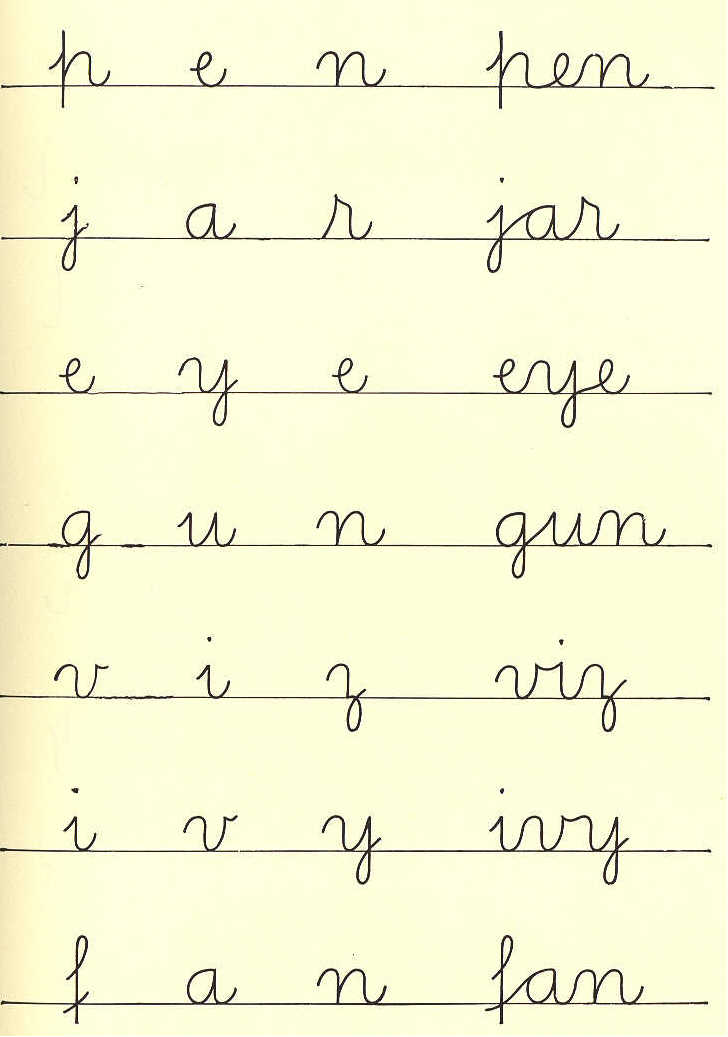 p e n pen
j a r jar
e y e eye
g u n gun
v i z viz
i v y ivy
f a n fan